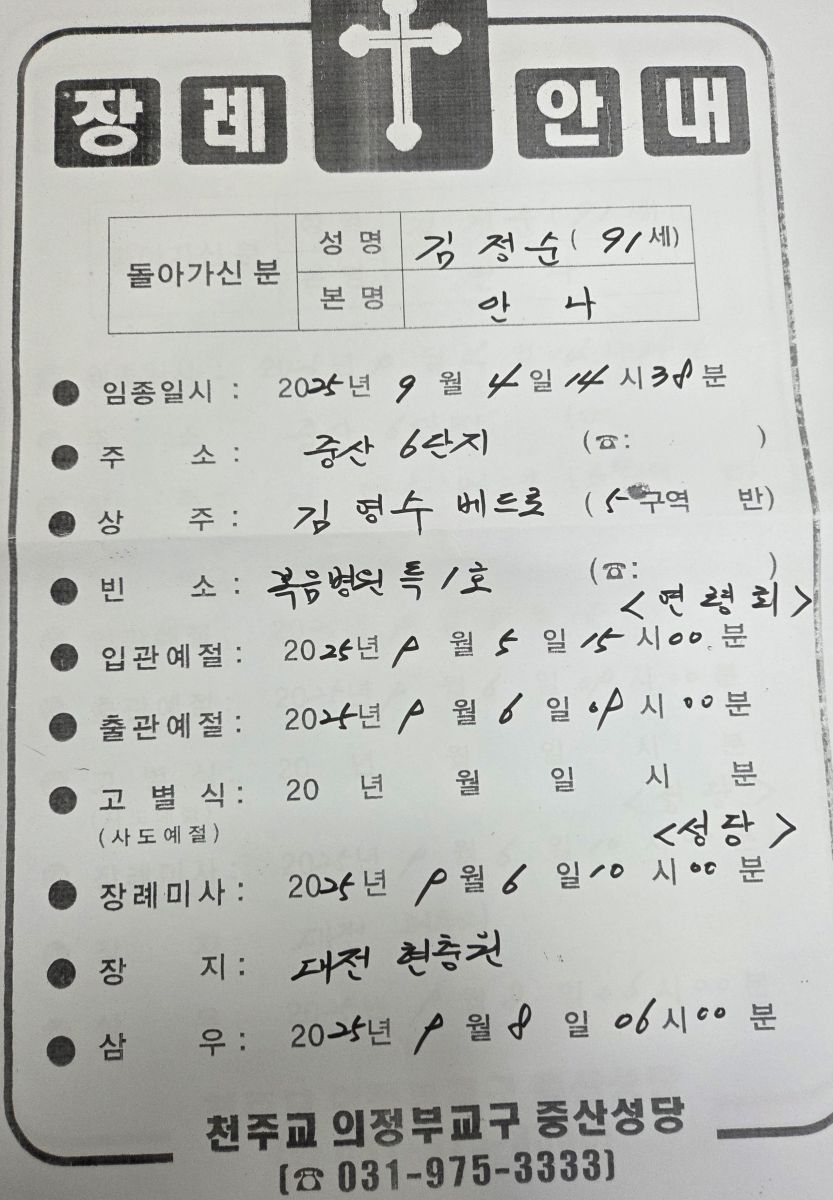 장례 안내
돌아가신 분 성명 김정순 (91세)
본명 안나
● 임종일시 : 2025년 9월 4일 14시 38분
● 주 소 : 중산 6단지 (☎: )
● 상 주 : 김영수 베드로 (5구역 반)
● 빈 소 : 복음병원 특1호 (☎: )
<연령회>
● 입관예절 : 2025년 9월 5일 15시 00분
● 출관예절 : 2025년 9월 6일 09시 00분
● 고별식 : 20 년 월 일 시 분
(사도예절)
<성당>
● 장례미사 : 2025년 9월 6일 10시 00분
● 장 지 : 대전 현충원
● 삼 우 : 2025년 9월 8일 06시 00분
천주교 의정부교구 중산성당
(☎ 031-975-3333)